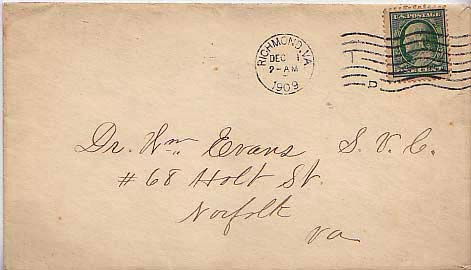 RICHMOND, VA.
DEC 1
9-AM
1909
U.S. POSTAGE
Dr. Wm. Evans S. V. C.
# 68 Holt St.
Norfolk
Va